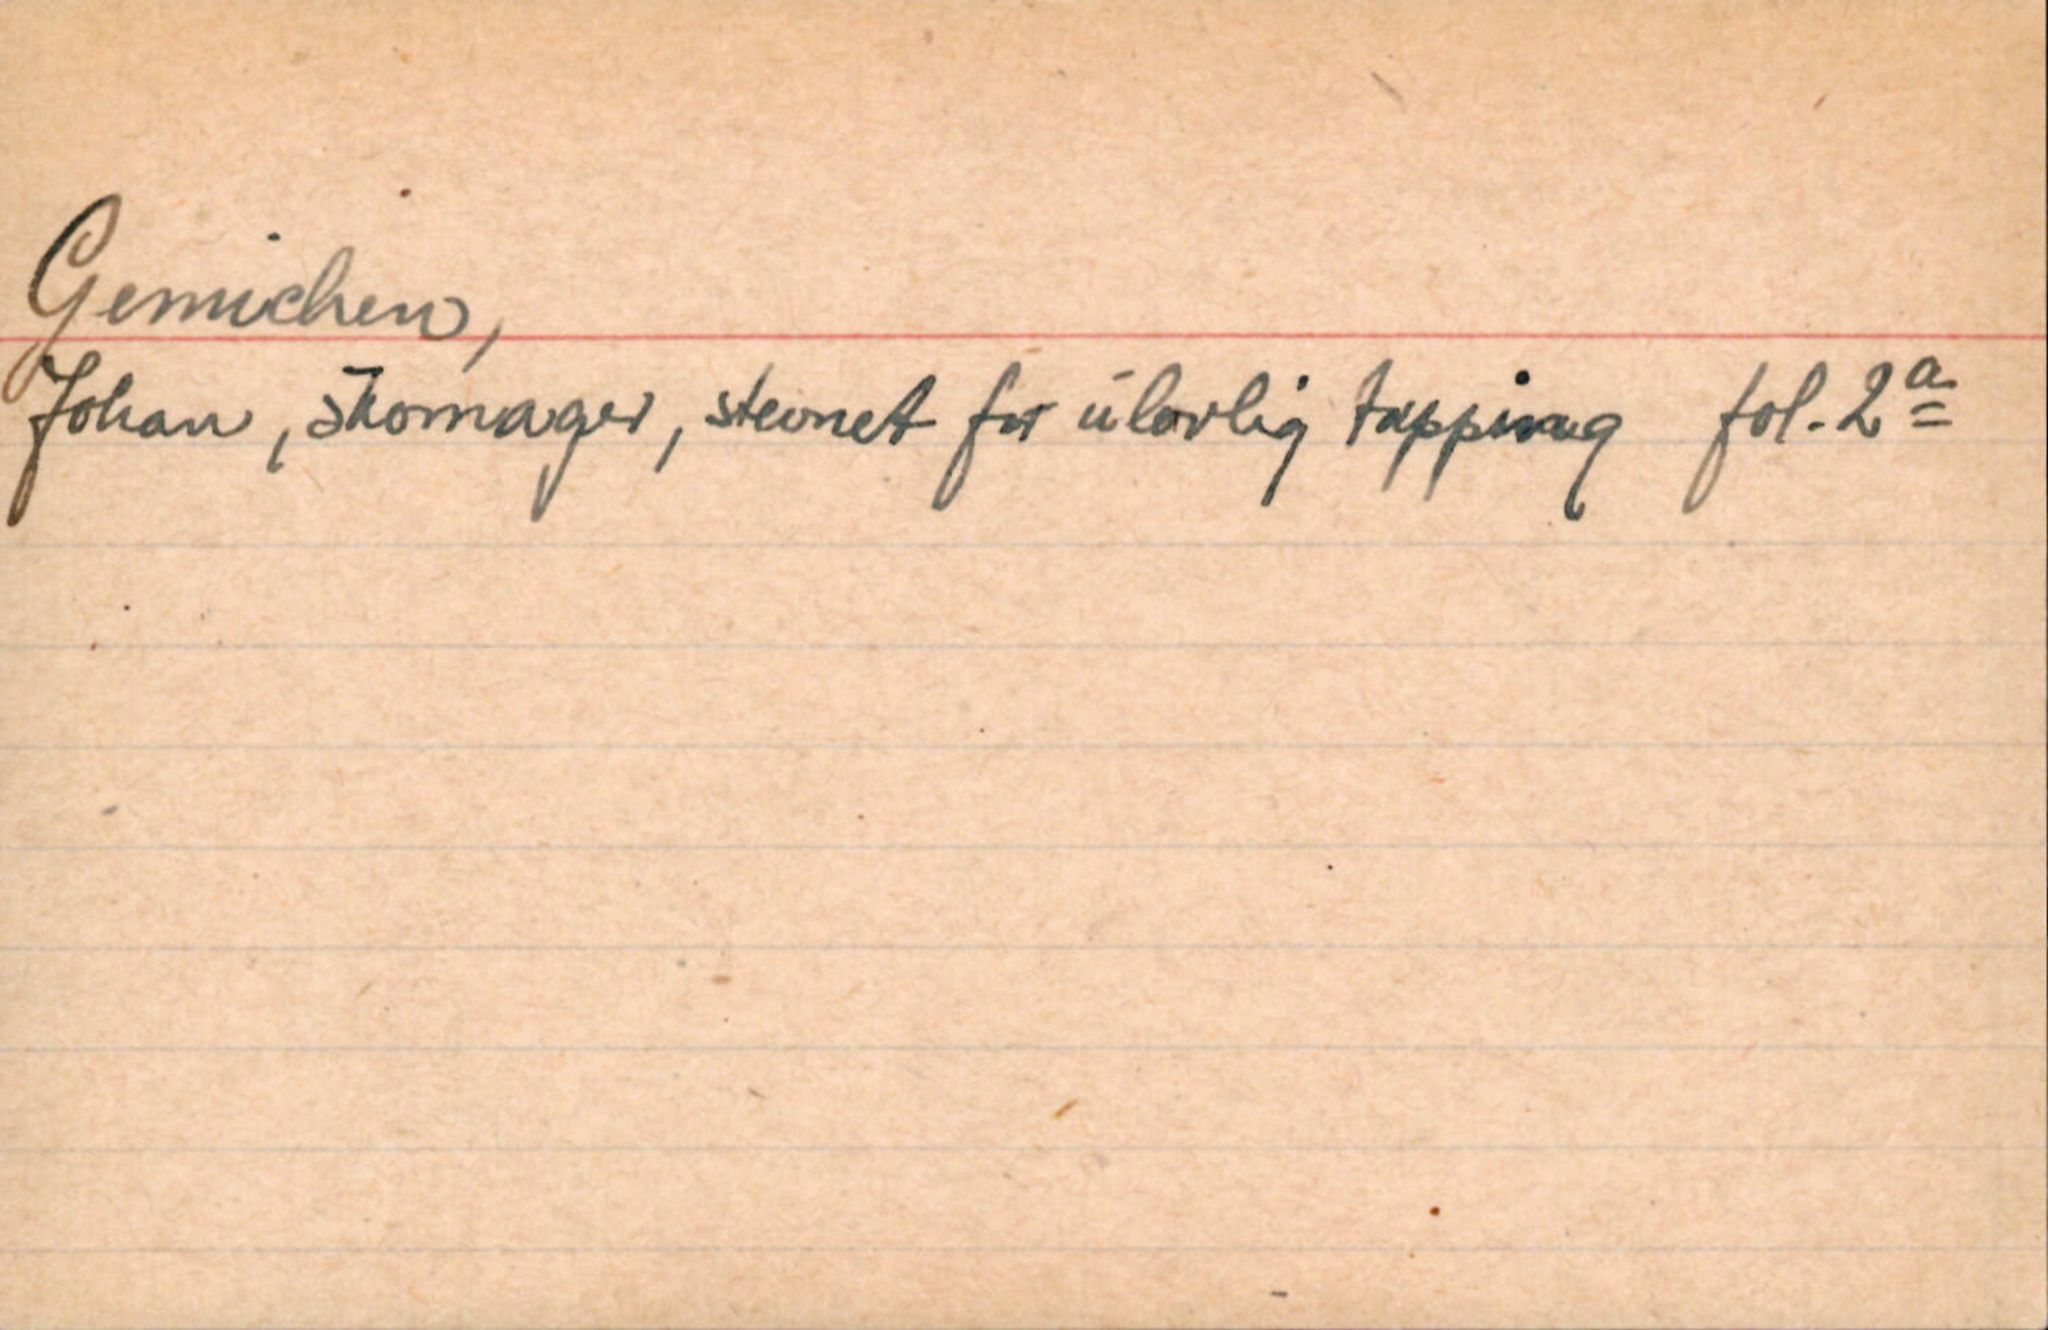 Gemichen,
Johan, skomager, stevnet for ulovlig tapping fol. 2a